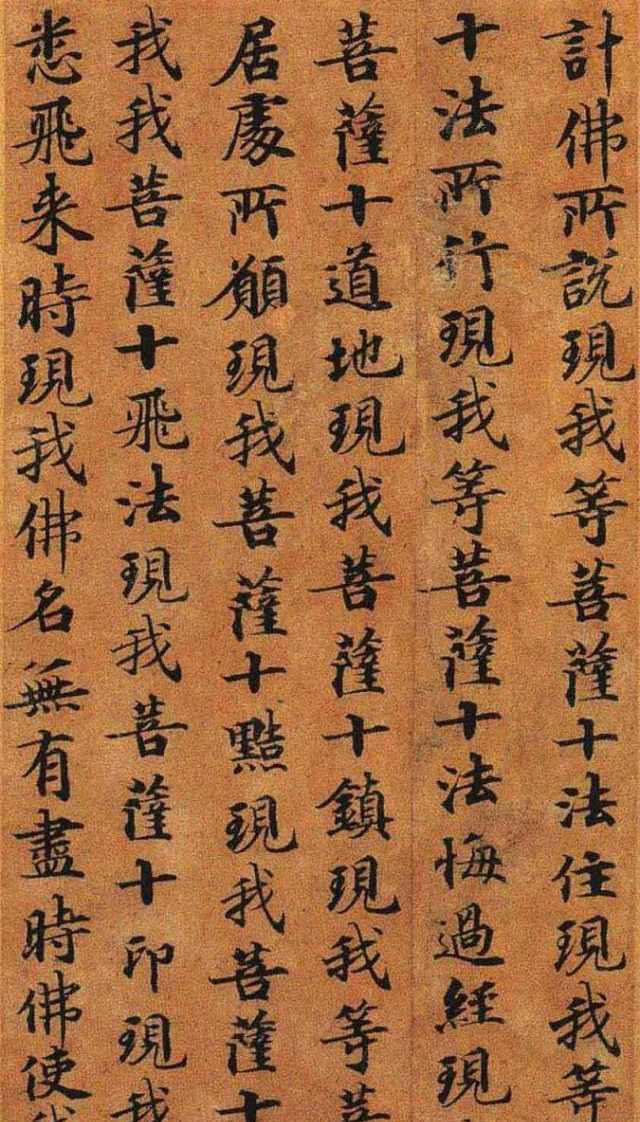 計佛所說現我等菩薩十法住現我等
十法所行現我等菩薩十法悔過經現
菩薩十道地現我菩薩十鎮現我等菩
居處所願現我菩薩十黠現我菩薩十
我我菩薩十飛法現我菩薩十印現我
悉飛来時現我佛名無有盡時佛使